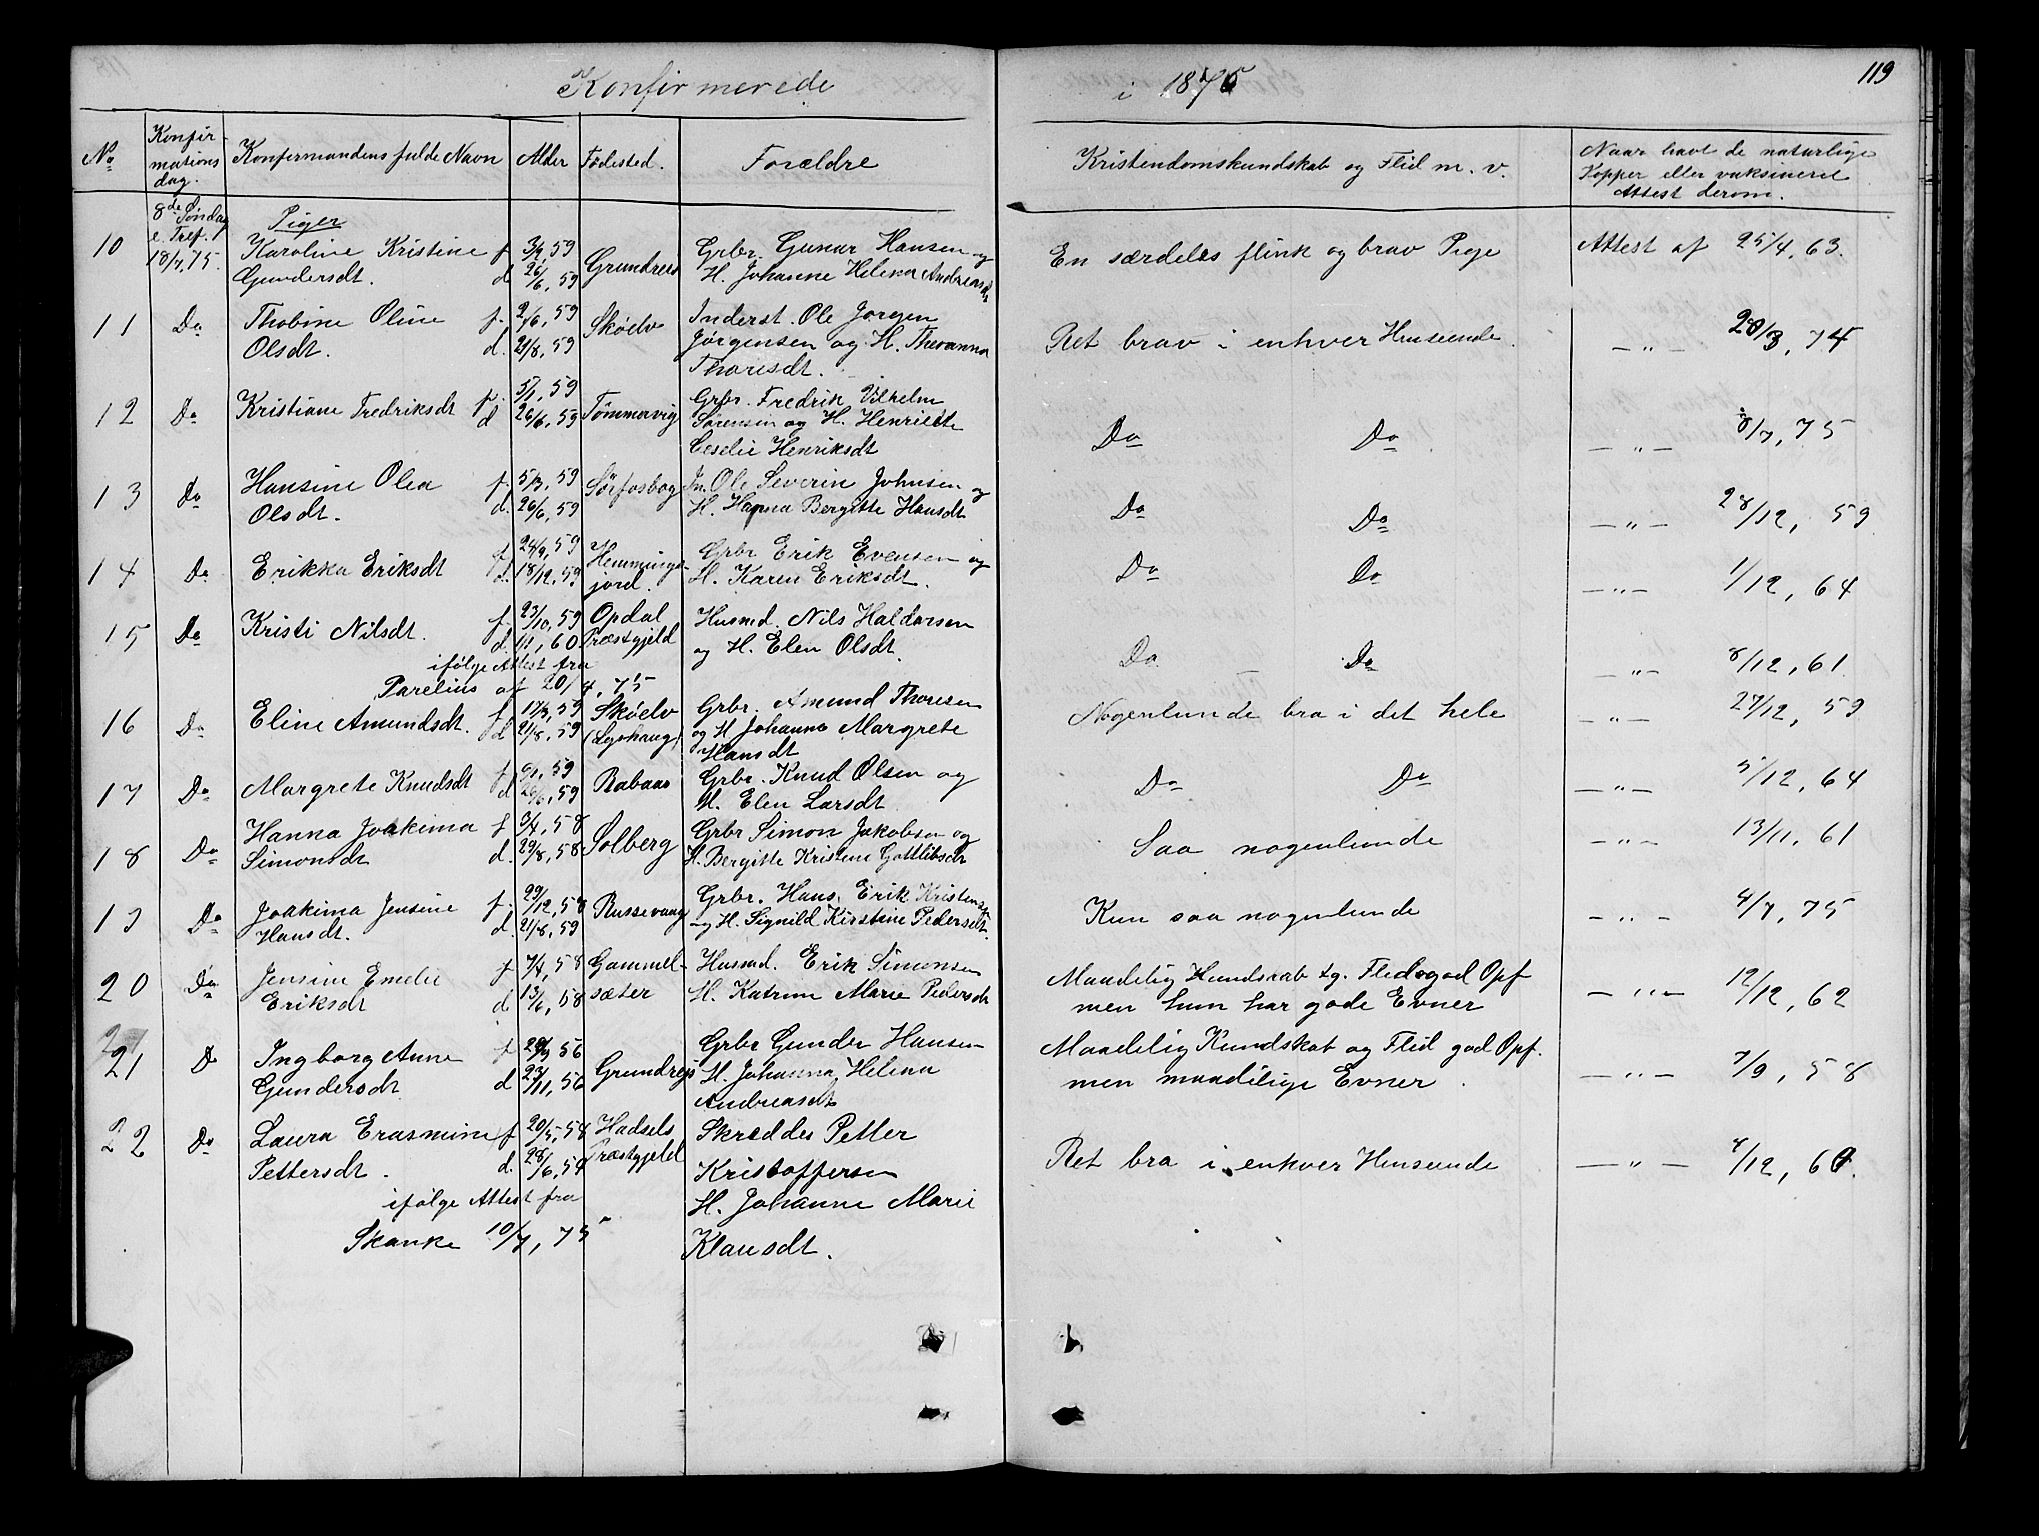 Konfirmerede
i 1875
119
No
Konfir-
mations
dag.
Konfermandens fulde Navn
Alder
Fødested.
Forældre
Kristendomskundskab og Flid m. v.
Naar havt de naturlige
Kopper eller vaksineret
Attest derom.
8de Søndag
e. Tref.
18/7, 75.
Piger
10 Karoline Kristine f 3/2, 59 Grundreis Grbr. Gunar Hansen og En særdeles flink og brav Pige Attest af 25/4, 63.
Gundersdt. d 26/6, 59 H. Johanne Helena Andreasdt
11 Do Thobine Oline f. 2/6, 59 Skøelv Inderst. Ole Jørgen Ret brav i enhver Henseende. —„— 28/3, 74
Olsdt. d. 21/8, 59 Jørgensen og H. Theranna
Thorisdt.
12 Do Kristiane Fredriksdt f. 5/1, 59 Tømmervig Grbr. Fredrik Vilhelm Do Do —„— 8/7, 75
d 26/6, 59 Sørensen og H. Henriette
Ceselie Henriksdt
13 Do Hansine Olea f. 5/3, 59 Sørfosbog In. Ole Severin Johnsen og Do Do —„— 28/12, 59
Olsdt. d. 26/6, 59 H. Hanna Bergitte Hansdt
14 Do Erikka Eriksdt f 24/9, 59 Hemmings- Grbr Erik Evensen og Do Do —„— 1/12, 64
d. 18/12, 59 jord. H. Karen Eriksdt.
15 Do Kristi Nilsdt. f. 23/10, 59 Opdal Husmd. Nils Haldorsen Do Do —„— 8/12, 61
d. 1/1, 60 Præstgjeld og H. Elen Olsdt.
ifølge Attest fra
Parelius af 20/4, 75
16 Do Eline Amundsdt. f 17/3, 59 Skøelv Grbr. Amund Thoresen Nogenlunde bra i det hele —„— 27/12, 59
d 21/8, 59 (Lyshaug) og H Johanna Margrete
Hansdt
17 Do Margrete Knudsdt f 9/1, 59 Rabaas Grbr. Knud Olsen og Do Do —„— 5/12, 64
d 26/6, 59 H. Elen Larsdt
18 Do Hanna Joakima f 3/4, 58 Solberg Grbr Simon Jakobsen og Saa nogenlunde —„— 13/11, 61
Simonsdt d. 29/8, 58 H. Bergitte Kristine Gottlibsdt
19 Do Joakima Jensine f. 29/12, 58 Russevaag Grbr. Hans Erik Kristensen Kun saa nogenlunde —„— 4/7, 75
Hansdt. d. 21/8, 59 og H. Signild Kirstine Pedersdt.
20 Do Jensine Emelie f 7/4, 58 Gammel- Husmd. Erik Simonsen Maadelig Kundskab og. Flid god Opf
Eriksdt d. 13/6, 58 sæter H. Katrine Marie Pedersdt men hun har gode Evner —„— 12/12, 62
21 Do Ingborg Anne f 56 Grundreis Grbr Gunder Hansen Maadelig Kundskab og Flid god Opf.
Gundersdt d 23/11, 56 H. Johanna Helena men maadelige Evner. —„— 7/9, 58
Andreasdt
22 Do Laura Erasmine f 20/5, 58 Hadsels Skredder Petter Ret bra i enhver Henseende —„— 8/12, 60.
Pettersdt. d. 28/6, 59 Præstgjeld Kristoffersen
ifølge Attest fra H. Johanne Marie
Skanke 10/7, 75 Klausdt.